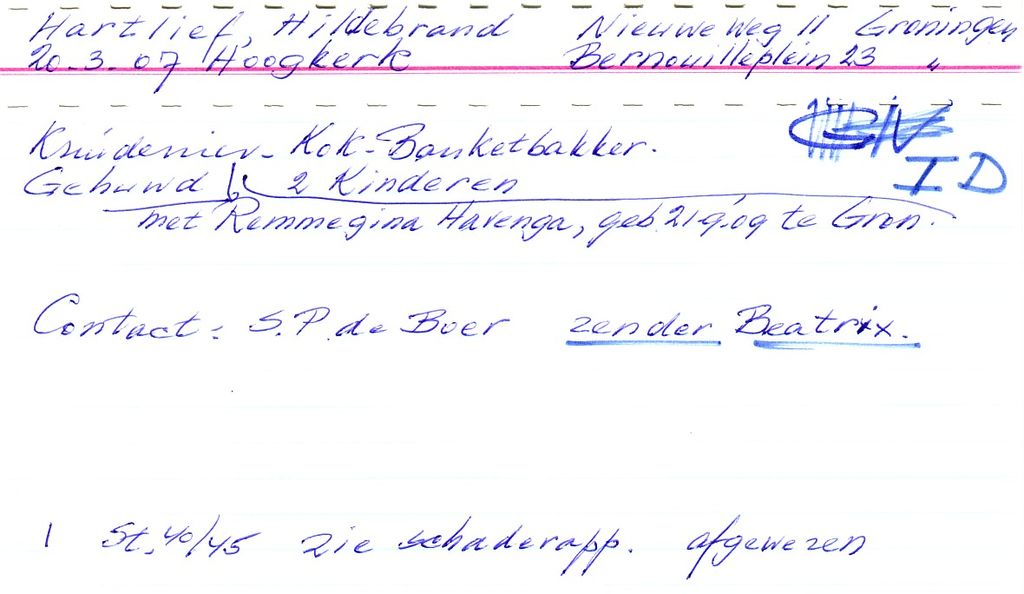 Hartlief, Hildebrand Nieuweweg 11 Groningen
20-3-07 Hoogkerk Bernouilleplein 23 "
Kruidenier - Kok - Banketbakker.
Gehuwd 2 Kinderen
ID
met Remmegina Havenga, geb. 21-9-09 te Gron.
Contact: S.P. de Boer zender Beatrix.
1 St. 40/45 Zie schaderapp. afgewezen